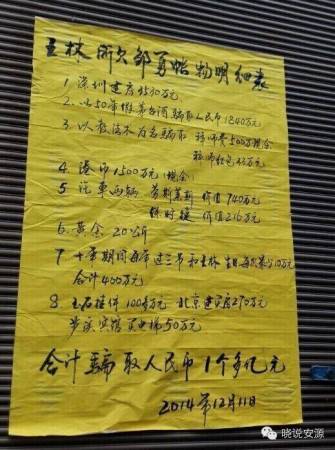 王林所欠邹勇帐物明细表
1 深圳建房3530万元
2. 以50年假茅台酒骗取人民币1840万元
3. 以教法术为名骗取 拜师费500万现金
拜师红包45万元
4 港币1500万元(现金)
5 汽车两辆 劳斯莱斯 价值740万元
保时捷 价值216万元
6. 黄金 20公斤
7 十年期间每年过三节和王林生日每次最少10万元
合计400万元
8 玉石挂件100多万元 北京建房270万元
芦溪宾馆买电梯50万元
合计骗取人民币1个多亿元
2014年12月11日
晓说安源